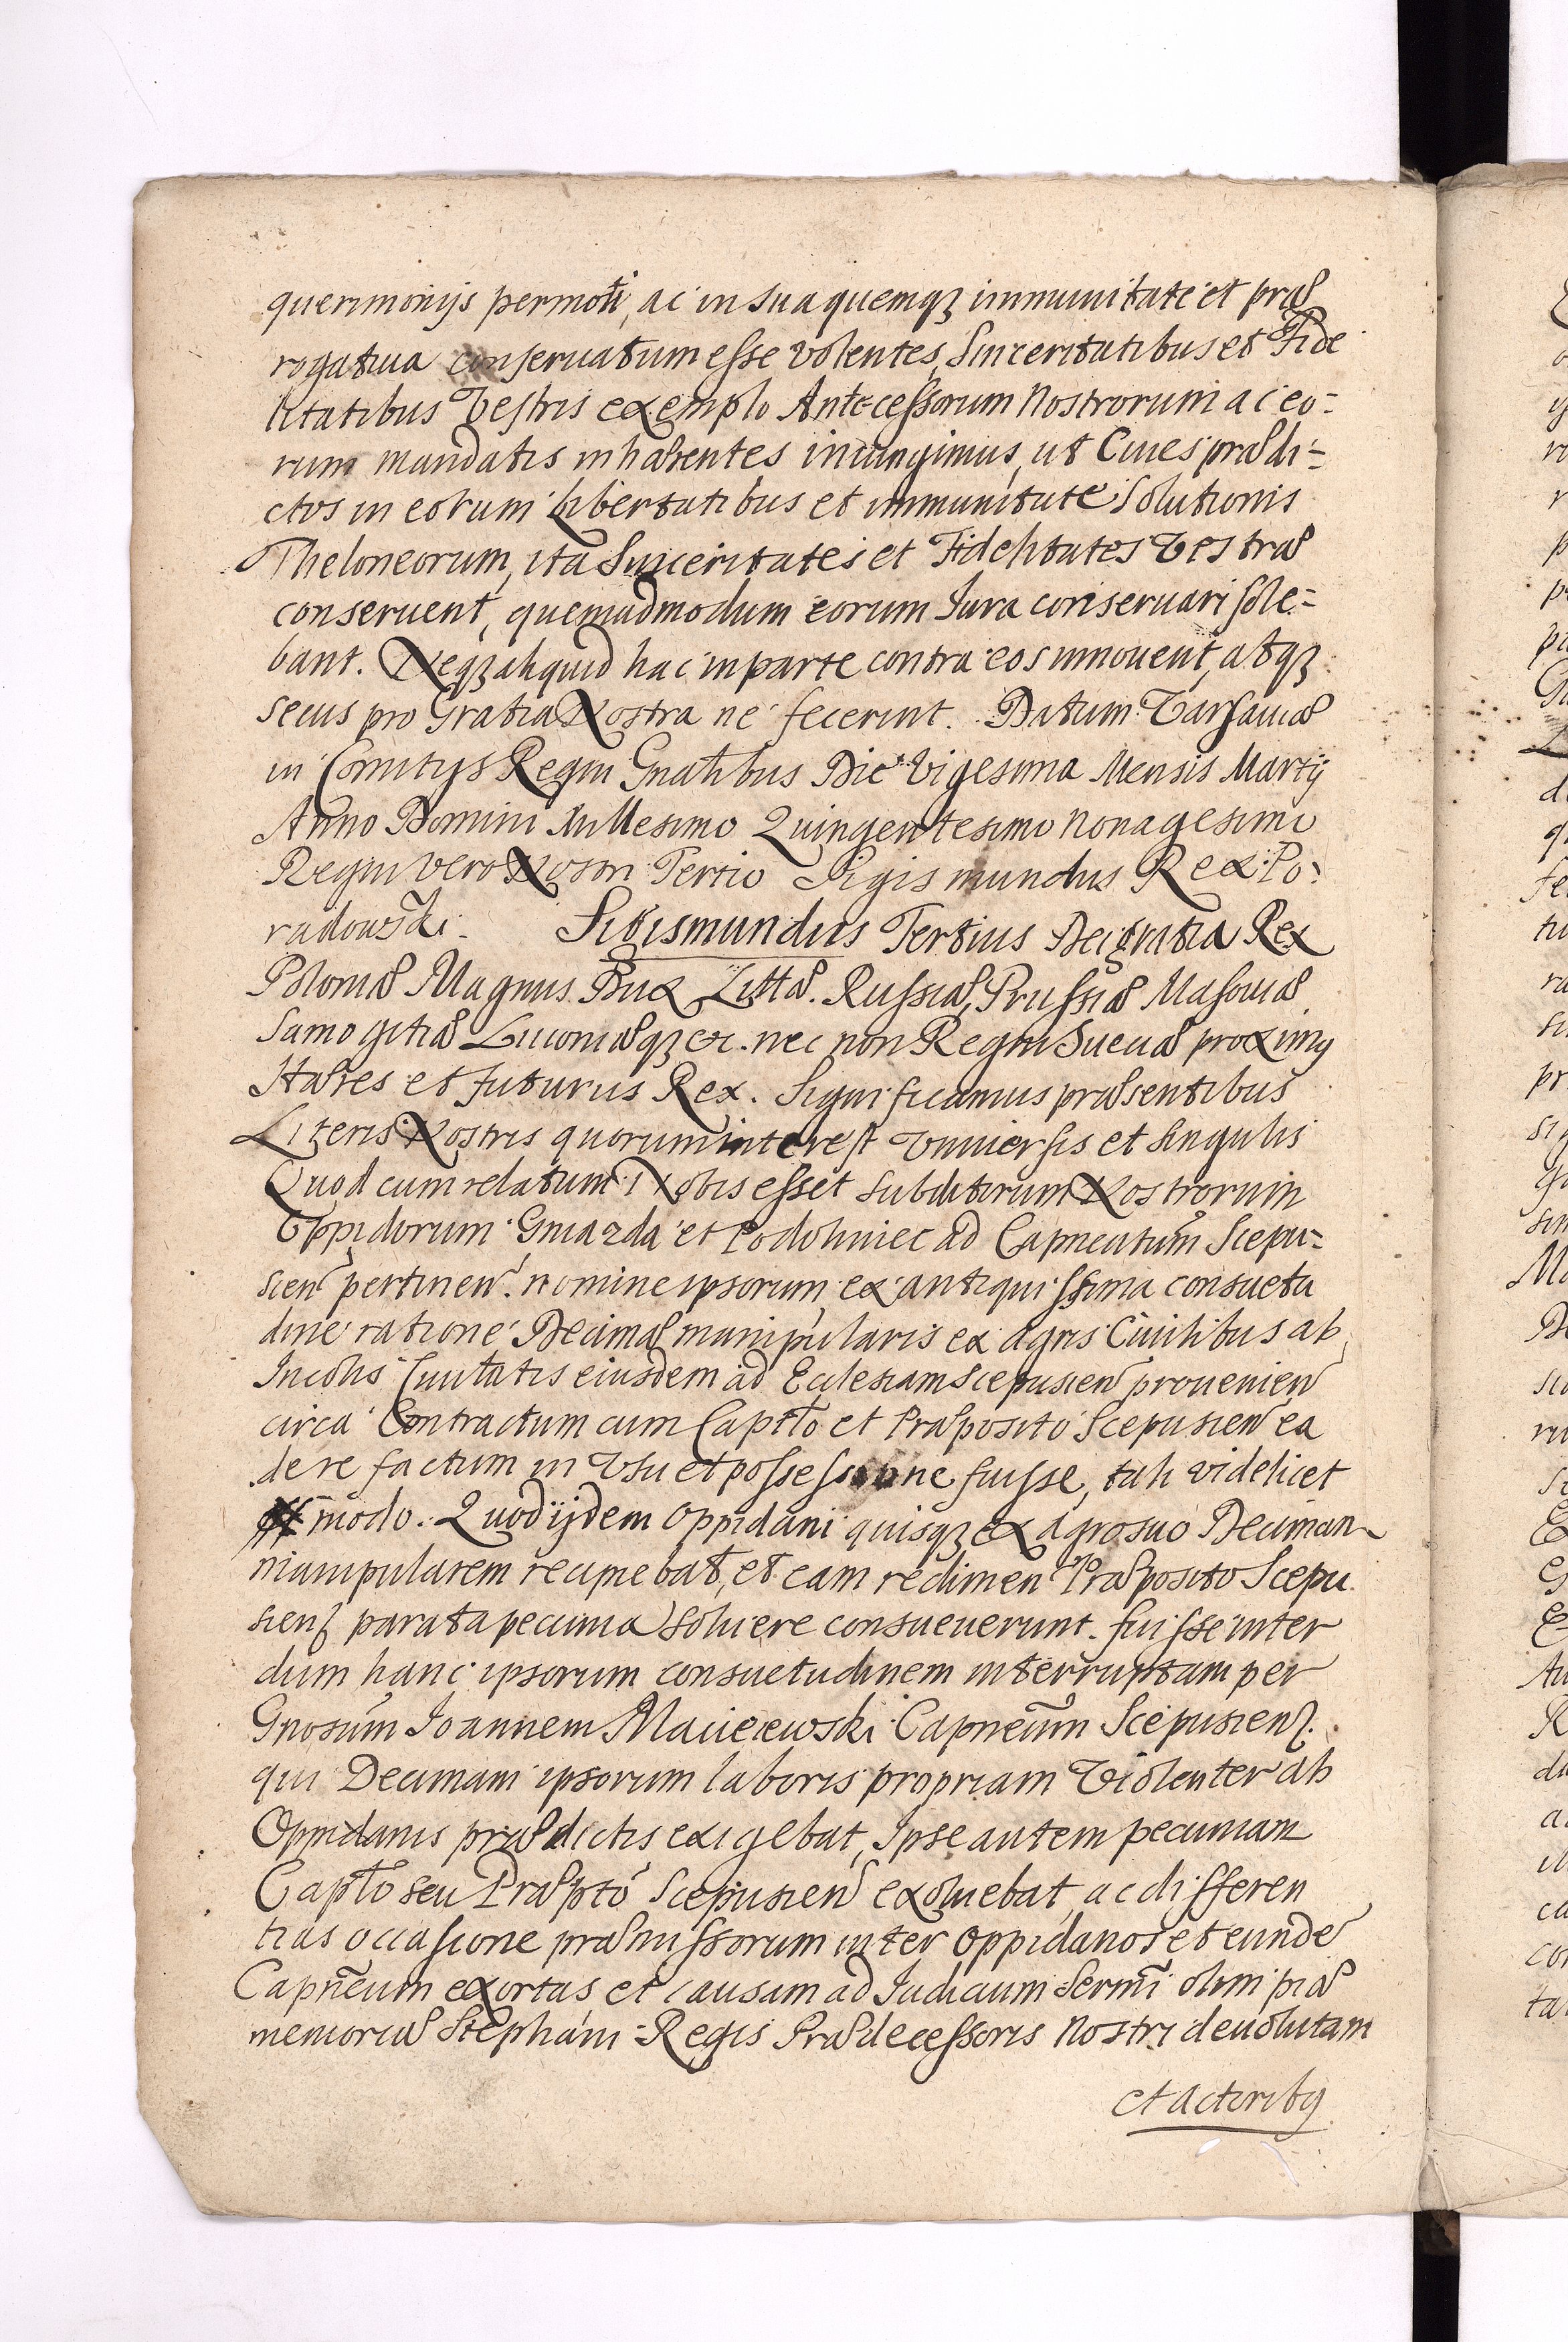 querimonijs permoti, ac in sua quemqꝫ immunitate et præ
rogatiua conseruatum esse volentes, Sinceritatibus et Fide
litatibus Vestris exemplo Antecessorum Nostrorum ac eo=
rum mandatis inhærentes iniungimus, ut Ciues prædi=
ctos in eorum Libertatibus et immunitate solutionis
Theloneorum, ita Sinceritates et Fidelitates Vestræ
conseruent, quemadmodum eorum Iura conseruari sole=
bant. Neqꝫ aliquid hac in parte contra eos innouent, atqꝫ
secus pro Gratia Nostra ne fecerint. Datum Varsauiæ
in Comitijs Regni Gnalibus Die Vigesima Mensis Martij
Anno Domini Millesimo Quingentesimo Nonagesimo
Regni vero Nostri Tertio Sigismundus Rex. Po:
radowski. Sigismundus Tertius Dei gratia Rex
Poloniæ Magnus Dux Littæ. Russiæ, Prussiæ Masouiæ
Samogitiæ Liuoniæqꝫ etc. nec non Regni Sueciæ proximꝰ
Hæres et futurus Rex. Significamus præsentibus
Literis Nostris quorum interest Vniuersis et singulis
Quod cum relatum Nobis esset subditorum Nostrorum
Oppidorum Gniazda et Podoliniec ad Capneatum Scepu=
sien pertinen. nomine ipsorum, ex antiquissima consuetu
dine ratione Decimæ manipularis ex agris Ciuilibus ab
Incolis Ciuitatis eiusdem ad Ecclesiam Scepusien prouenien
circa Contractum cum Captlo et Præposito Scepusien ea
de re factum in Vsu et possessione fuisse, tali videlicet
modo. Quod ijdem Oppidani quisqꝫ ex agro suo Deciman
manipularem recipiebat, et eam redimen Præposito Scepu
sien parata pecunia soluere consueuerunt. fuisse inter
dum hanc ipsorum consuetudinem interruptam per
Gnosum Joannem Macieiewski Capneum Scepusien.
qui Decimam ipsorum laboris propriam Violenter ab
Oppidanis prædictis exigebat, Ipse autem pecuniam
Captlo seu Præpto Scepusien exoluebat, ac differen
tias occasione præmissorum inter Oppidanos et eunde
Capneum exortas et causam ad Iudicium Sermi olim piæ
memoriæ Stephani Regis Prædecessoris Nostri deuolutam
et actoribꝰ